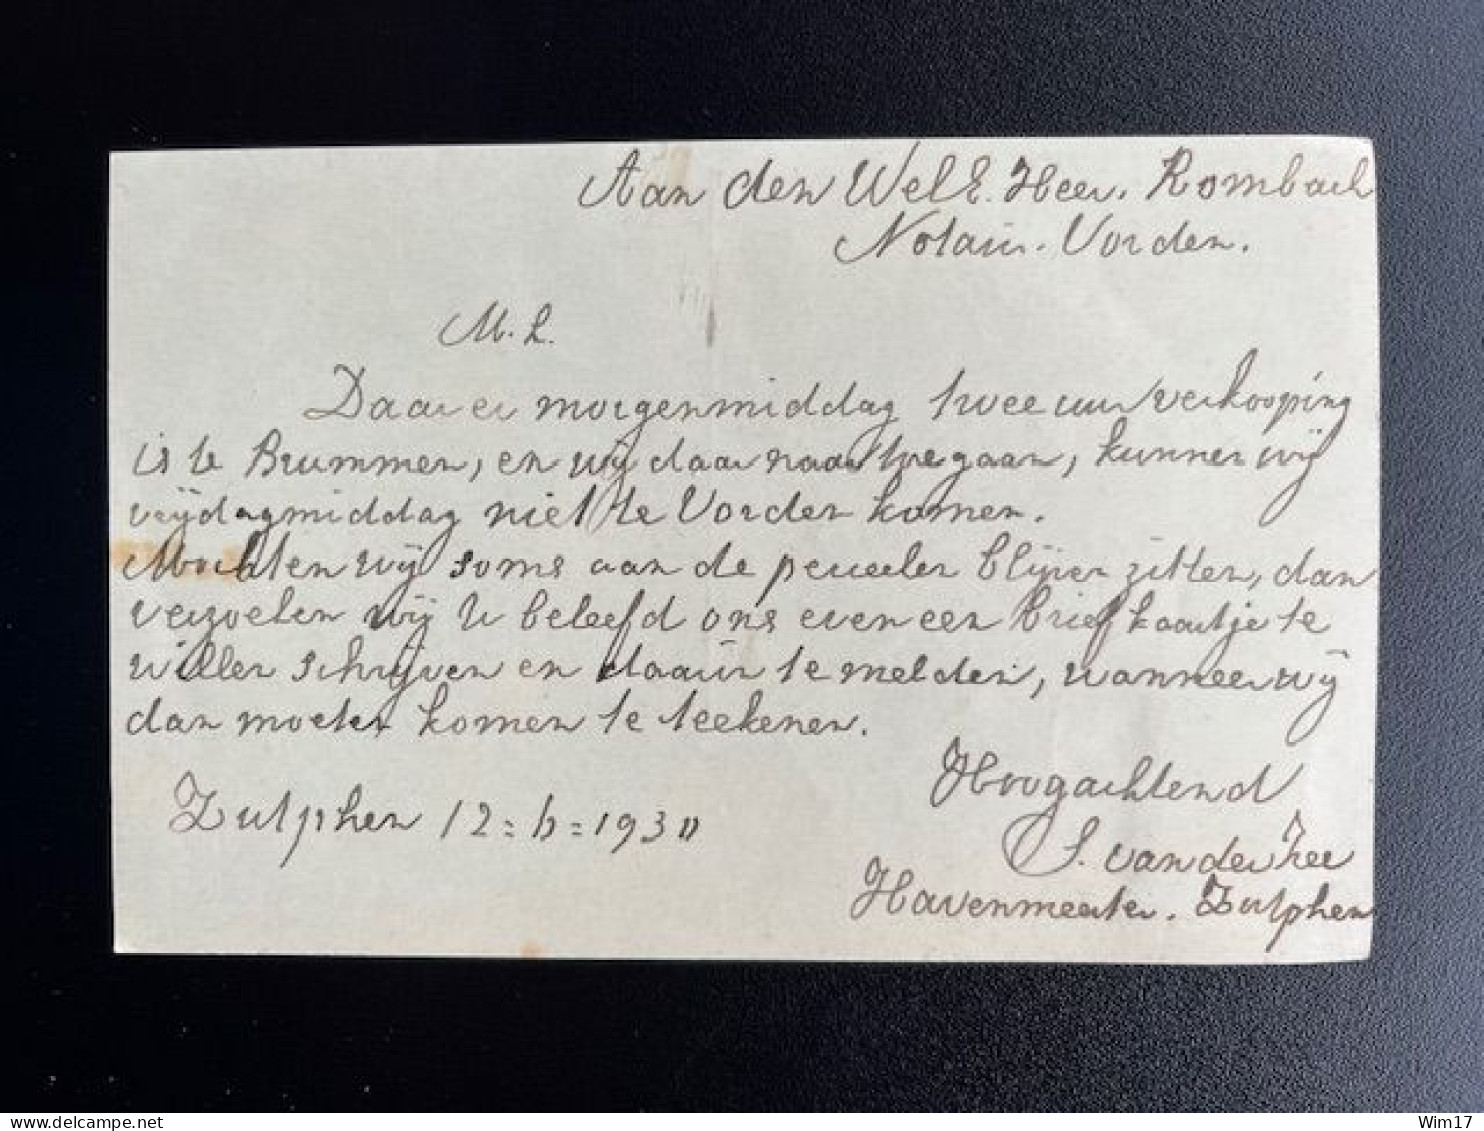 Aan den WelE. Heer. Rombach
Notaris. Vorden.
M. H.
Daar er morgenmiddag twee uur verkooping
is te Brummen, en wij daar naar toe gaan, kunnen wij
vrijdagmiddag niet te Vorden komen.
Mochten wij soms aan de perceelen blijven zitten, dan
verzoeken wij U beleefd ons even een briefkaartje te
willen schrijven en daarin te melden, wanneer wij
dan moeten komen te teekenen.
Hoogachtend
Zutphen 12=6=1930
S. van der Zee
Havenmeester. Zutphen
delcampe.net
Wim17